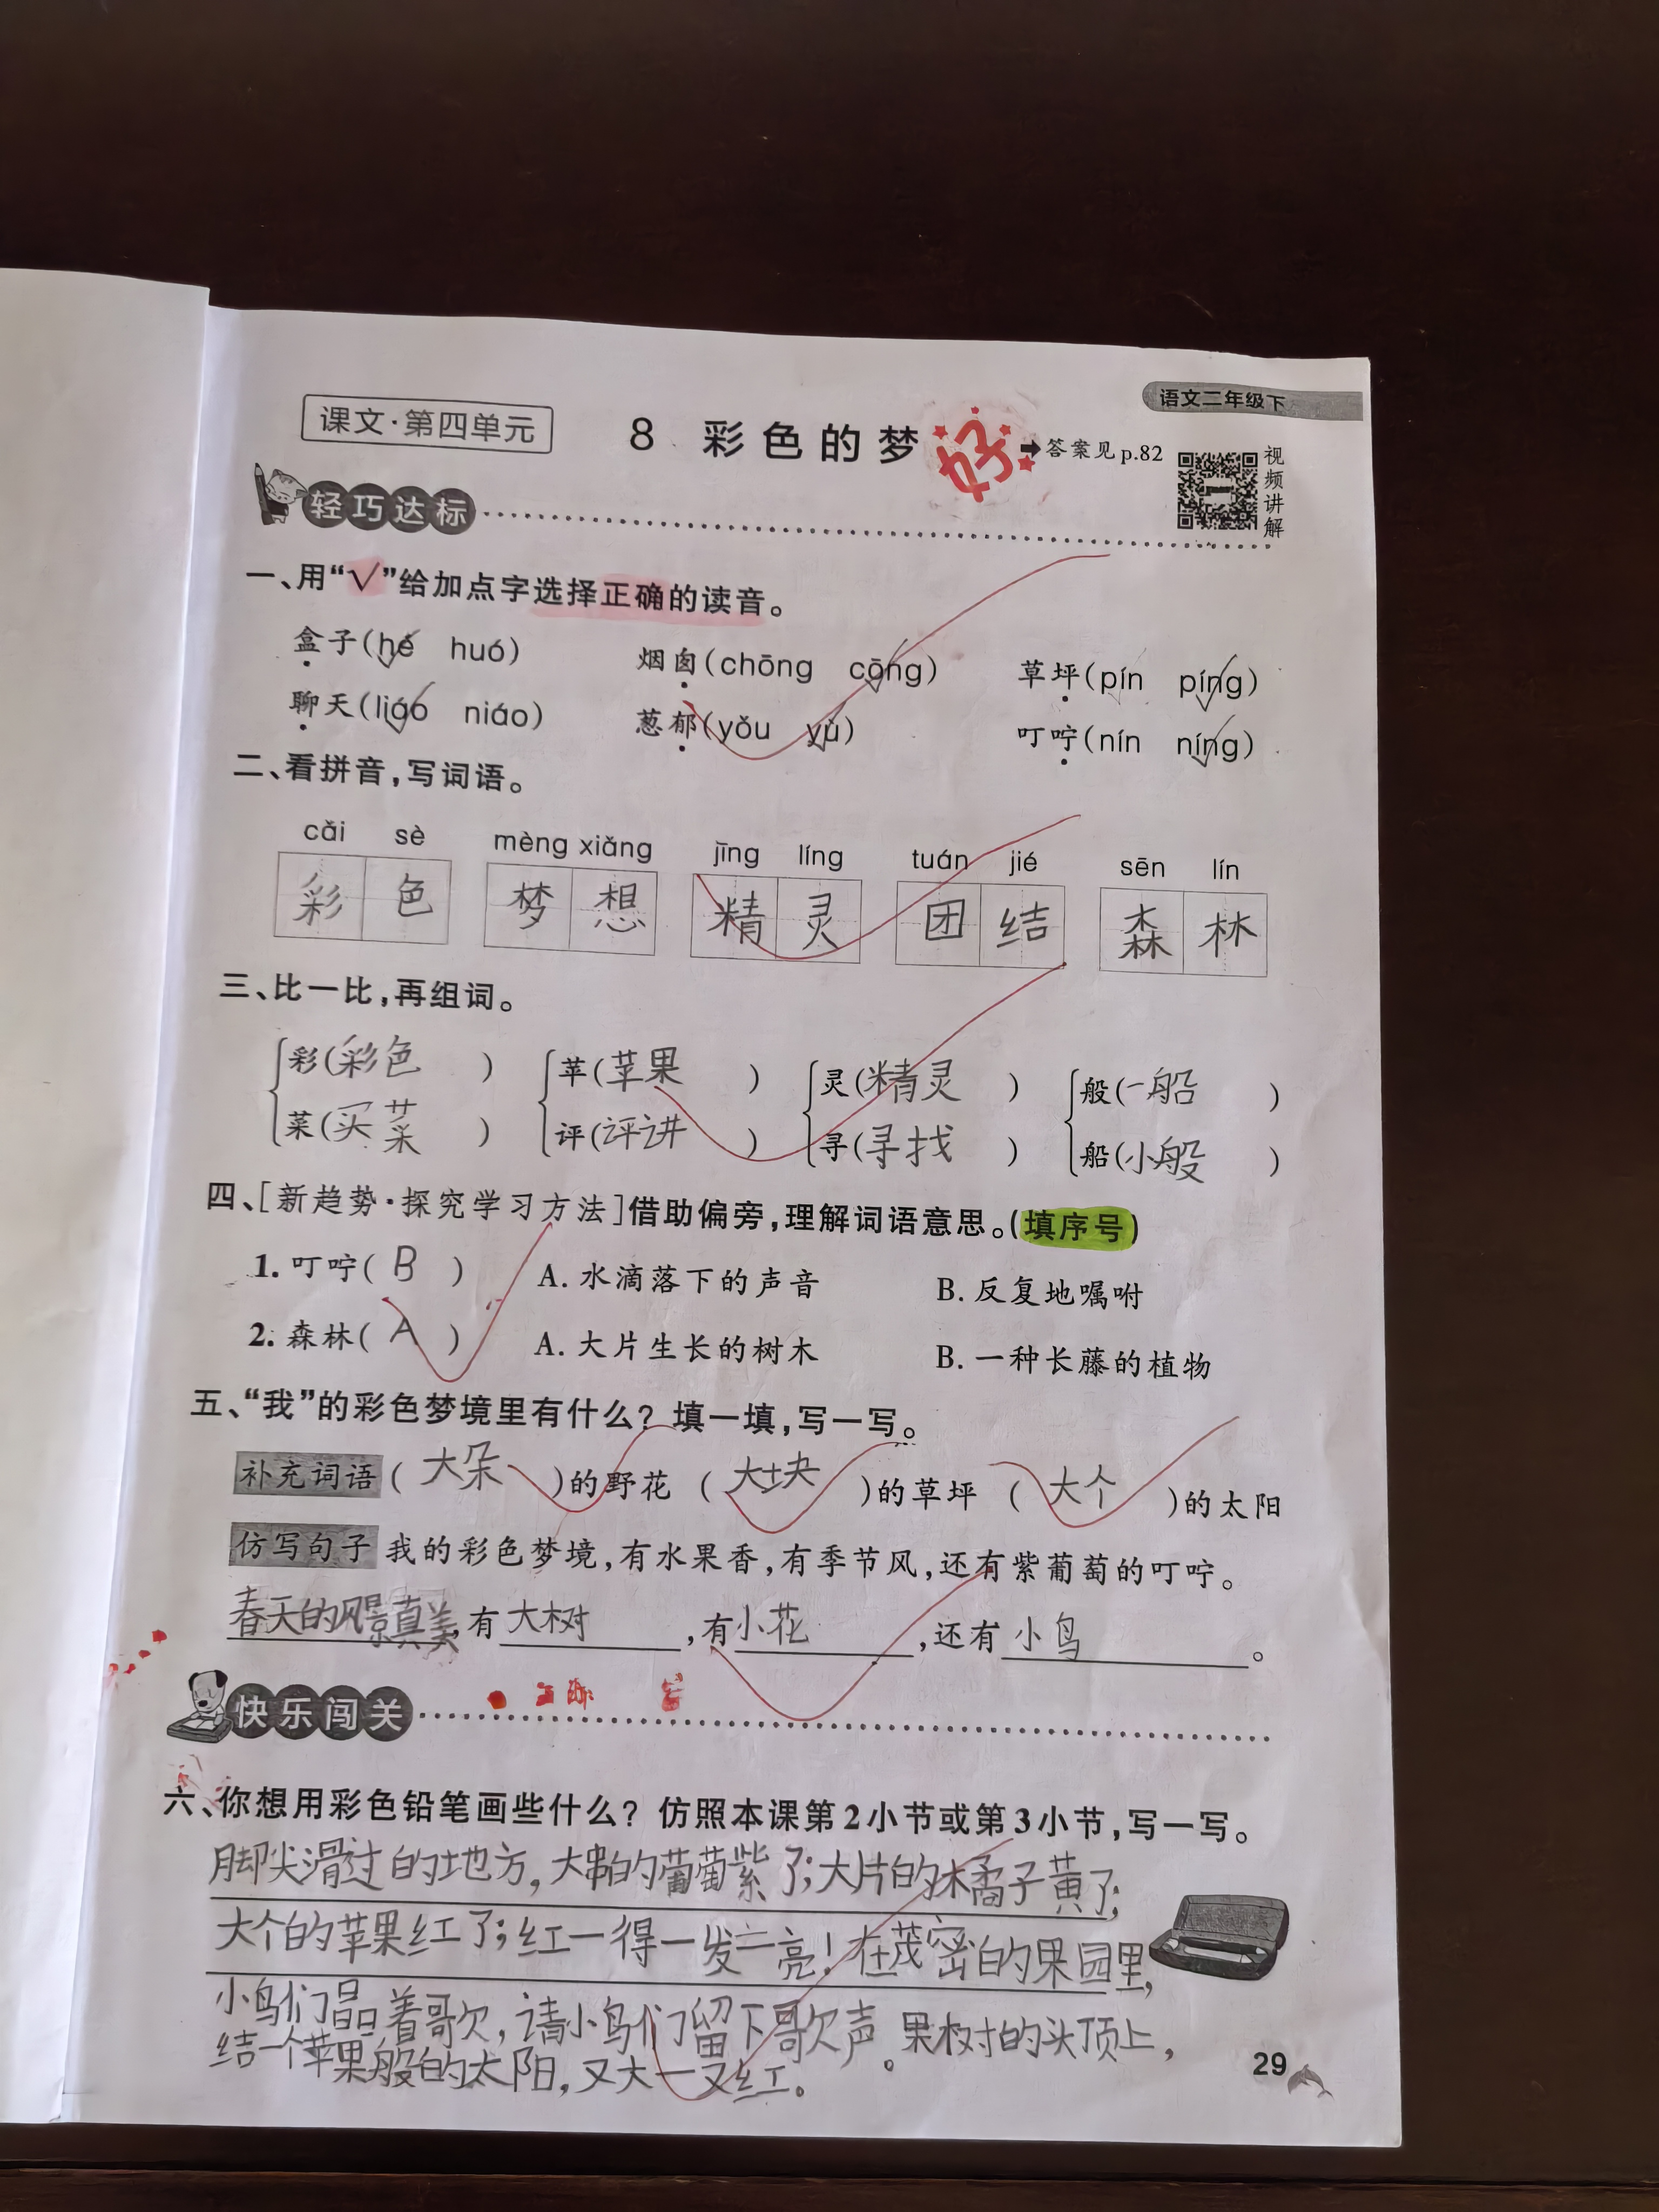 语文二年级下
课文·第四单元
8 彩色的梦
好
答案见p.82
视频讲解
轻巧达标
一、用“√”给加点字选择正确的读音。
盒子(hé huó) 烟囱(chōng cōng) 草坪(pín píng)
聊天(liáo niáo) 葱郁(yǒu yù) 叮咛(nín níng)
二、看拼音,写词语。
cǎi sè mèng xiǎng jīng líng tuán jié sēn lín
彩色 梦想 精灵 团结 森林
三、比一比,再组词。
彩(彩色) 苹(苹果) 灵(精灵) 般(一船)
菜(买菜) 评(评讲) 寻(寻找) 船(小般)
四、[新趋势·探究学习方法]借助偏旁,理解词语意思。(填序号)
1. 叮咛( B ) A. 水滴落下的声音 B. 反复地嘱咐
2. 森林( A ) A. 大片生长的树木 B. 一种长藤的植物
五、“我”的彩色梦境里有什么? 填一填,写一写。
补充词语 ( 大朵 )的野花 ( 大块 )的草坪 ( 大个 )的太阳
仿写句子 我的彩色梦境,有水果香,有季节风,还有紫葡萄的叮咛。
春天的风景真美,有大树,有小花,还有小鸟。
快乐闯关
六、你想用彩色铅笔画些什么? 仿照本课第2小节或第3小节,写一写。
脚尖滑过的地方,大串的葡萄紫了;大片的橘子黄了;
大个的苹果红了;红一得一发一亮!在茂密的果园里,
小鸟们唱着歌,请小鸟们留下歌声。果树的头顶上,
结一个苹果般的太阳,又大一又红。
29